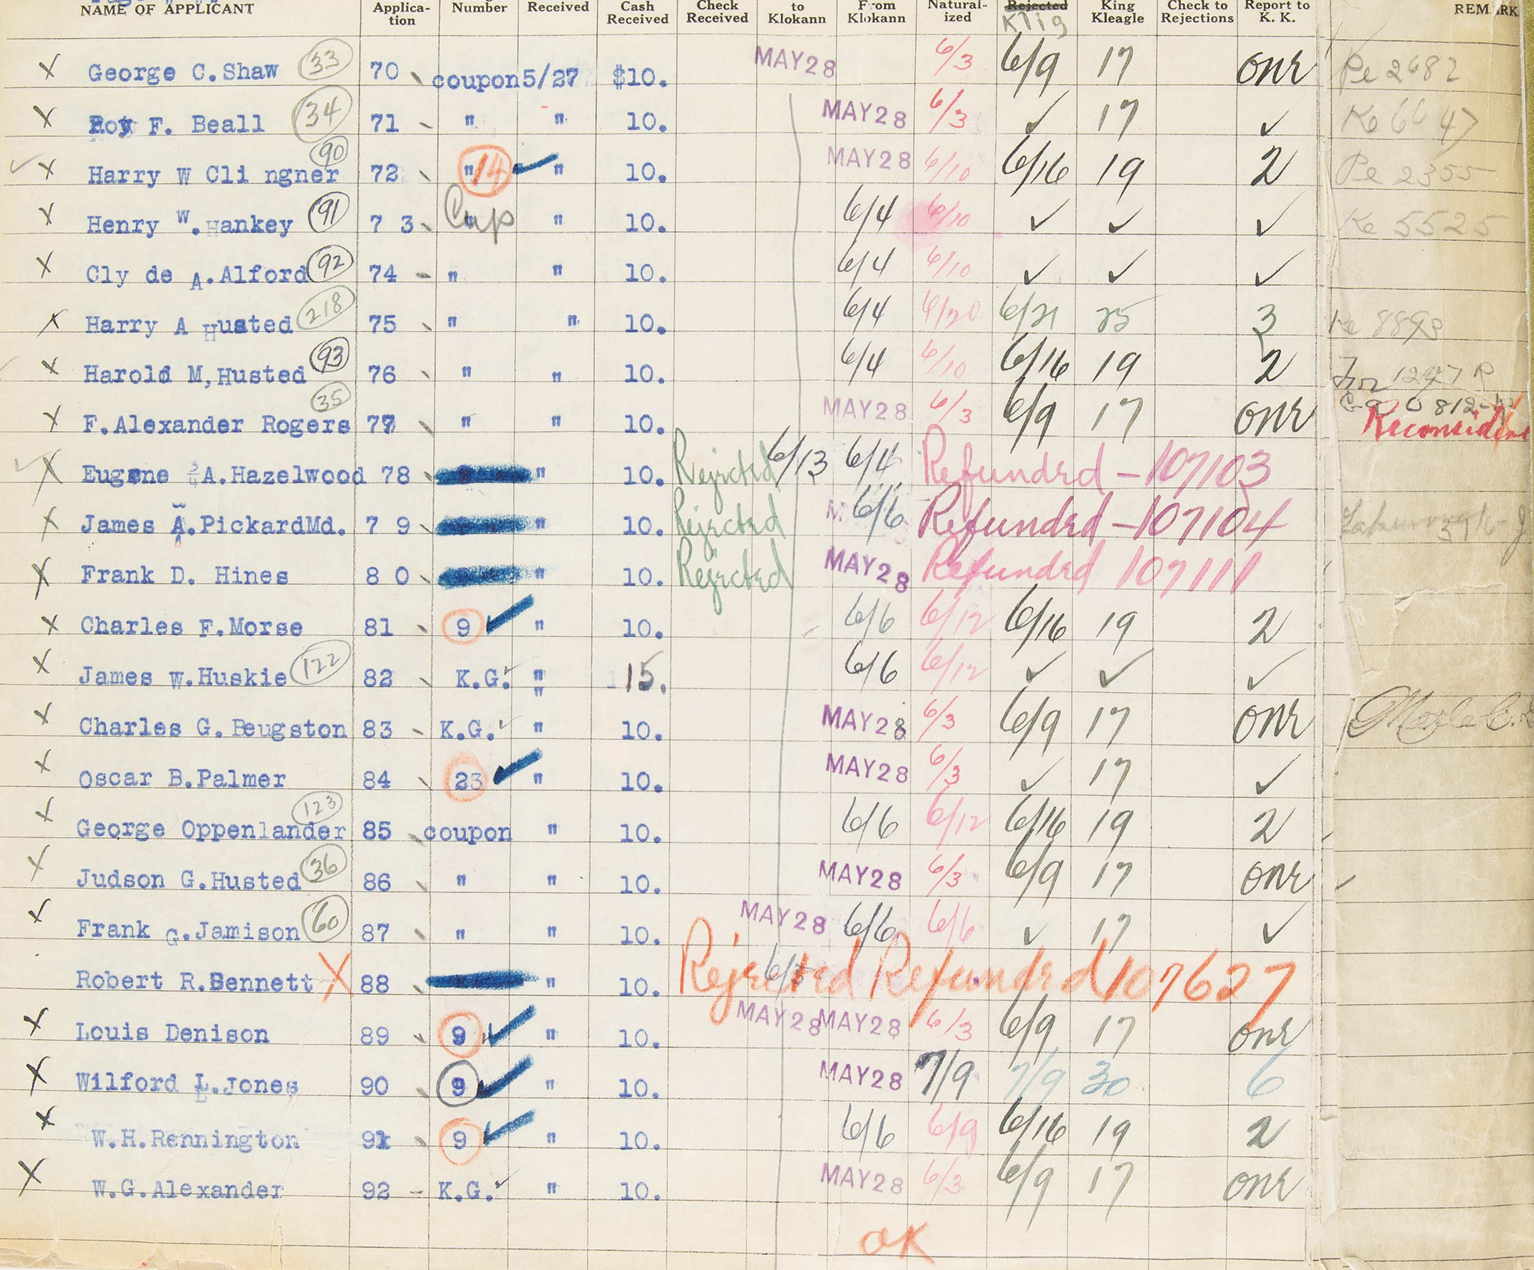 NAME OF APPLICANT Applica- tion Number Received Cash Received Check Received to Klokann From Klokann Natural- ized Rejected Klig King Kleagle Check to Rejections Report to K. K. REMARK
X George C. Shaw 33 70 coupon 5/27 $10. MAY 28 6/3 6/9 17 one Pe 2682
X Roy F. Beall 34 71 " " 10. MAY 28 6/3 ✓ 17 ✓ Ke 6647
✓ X Harry W Clingner 90 72 " 14 ✓ " 10. MAY 28 6/10 6/16 19 2 Pe 2355
X Henry W. Hankey 91 7 3 Cap " 10. 6/4 6/10 ✓ ✓ ✓ Ke 5525
X Cly de A. Alford 92 74 " " 10. 6/4 6/10 ✓ ✓ ✓
X Harry A Husted 218 75 " " 10. 6/4 6/20 6/21 25 3 Ke 8893
X Harold M, Husted 93 76 " " 10. 6/4 6/10 6/16 19 2 1247 R
X F. Alexander Rogers 35 77 " " 10. MAY 28 6/3 6/9 17 one
✓ X Eugene A. Hazelwood 78 " 10. Rejected 6/13 6/4 Refunded - 107103
X James A. Pickard Md. 7 9 " 10. Rejected 6/6 Refunded - 107104
X Frank D. Hines 8 0 " 10. Rejected MAY 28 Refunded 107111
X Charles F. Morse 81 9 ✓ " 10. 6/6 6/12 6/16 19 2
X James W. Huskie 122 82 K.G. ✓ " 15. 6/6 6/12 ✓ ✓ ✓
X Charles G. Beugston 83 K.G. ✓ " 10. MAY 28 6/3 6/9 17 one
X Oscar B. Palmer 84 23 ✓ " 10. MAY 28 6/3 ✓ 17 ✓
X George Oppenlander 123 85 coupon " 10. 6/6 6/12 6/16 19 2
X Judson G. Husted 36 86 " " 10. MAY 28 6/3 6/9 17 one
X Frank G. Jamison 60 87 " " 10. MAY 28 6/6 6/6 ✓ 17 ✓
Robert R. Bennett X 88 " 10. Rejected Refunded 107627
X Louis Denison 89 9 ✓ " 10. MAY 28 MAY 28 6/3 6/9 17 one
X Wilford L. Jones 90 9 ✓ " 10. MAY 28 7/9 7/9 30 6
X W. H. Rennington 91 9 ✓ " 10. 6/6 6/9 6/16 19 2
X W. G. Alexander 92 K.G. ✓ " 10. MAY 28 6/3 6/9 17 one
OK